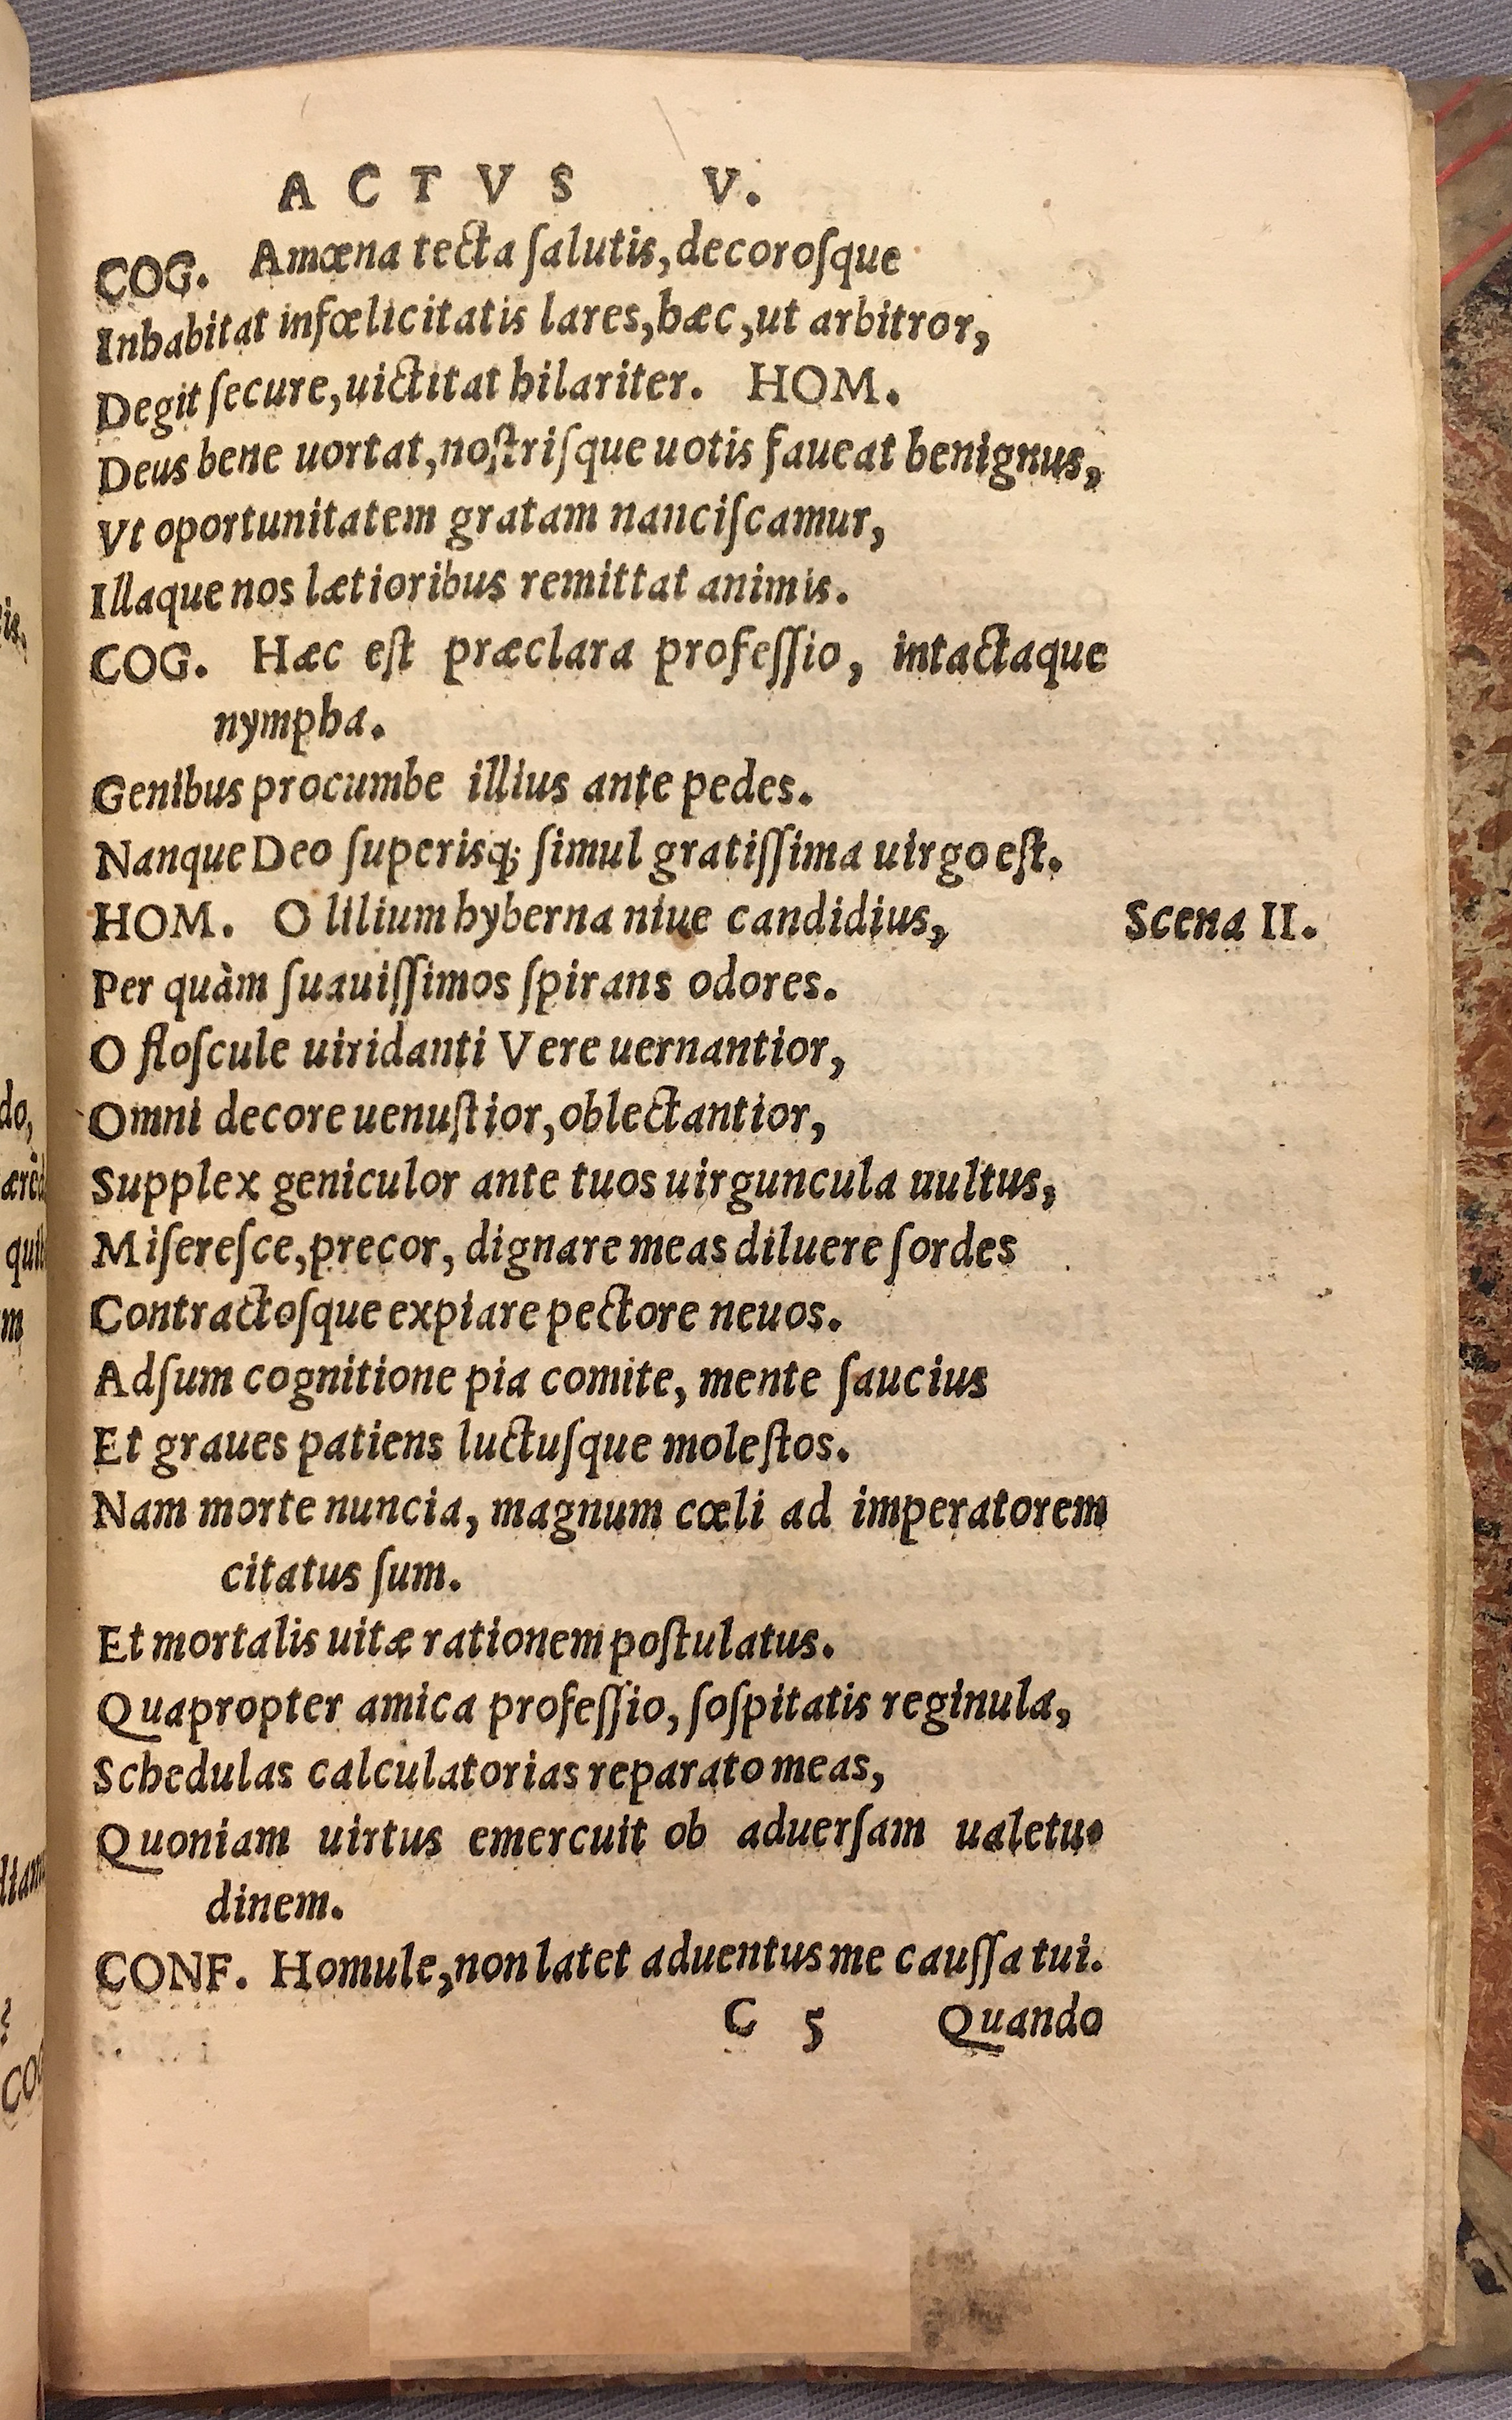 ACTVS V.
COG. Amœna tecta ſalutis, decoroſque
Inhabitat infœlicitatis lares, hæc, ut arbitror,
Degit ſecure, uictitat hilariter. HOM.
Deus bene uortat, noſtriſque uotis faueat benignus,
Vt oportunitatem gratam nanciſcamur,
Illaque nos lætioribus remittat animis.
COG. Hæc eſt præclara profeſſio, intactaque
nympha.
Genibus procumbe illius ante pedes.
Nanque Deo ſuperisq; ſimul gratiſſima uirgo eſt.
HOM. O lilium hyberna niue candidius, Scena II.
Per quàm ſuauiſſimos ſpirans odores.
O floſcule uiridanti Vere uernantior,
Omni decore uenuſtior, oblectantior,
Supplex geniculor ante tuos uirguncula uultus,
Miſereſce, precor, dignare meas diluere ſordes
Contractoſque expiare pectore neuos.
Adſum cognitione pia comite, mente ſaucius
Et graues patiens luctuſque moleſtos.
Nam morte nuncia, magnum cœli ad imperatorem
citatus ſum.
Et mortalis uitæ rationem poſtulatus.
Quapropter amica profeſſio, ſoſpitatis reginula,
Schedulas calculatorias reparato meas,
Quoniam uirtus emercuit ob aduerſam ualetu-
dinem.
CONF. Homule, non latet aduentus me cauſſa tui.
C 5 Quando